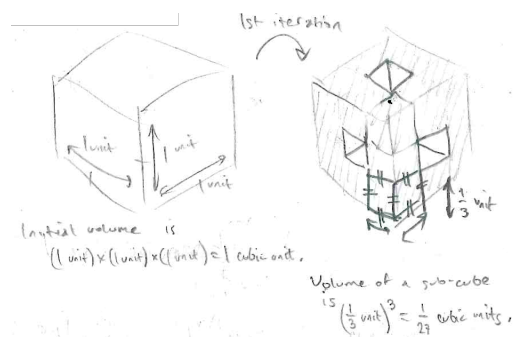 1st iteration
1 unit
1 unit
1 unit
1/3 unit
Initial volume is
(1 unit)×(1 unit)×(1 unit)=1 cubic unit.
Volume of a sub-cube
is (1/3 unit)³ = 1/27 cubic units.